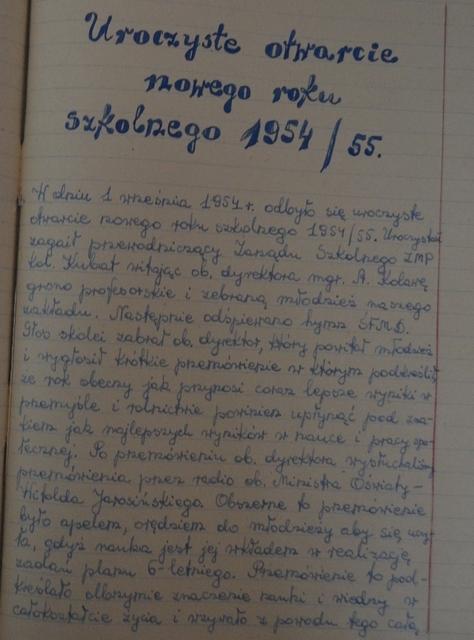 Uroczyste otwarcie
nowego roku
szkolnego 1954/55.
W dniu 1 września 1954 r. odbyło się uroczyste
otwarcie nowego roku szkolnego 1954/55. Uroczystość
zagaił przewodniczący Zarządu Szkolnego ZMP
kol. Kubat witając ob. dyrektora mgr. A. Kolarę
grono profesorskie i zebraną młodzież naszego
zakładu. Następnie odśpiewano hymn ŚFMD.
Głos skolei zabrał ob. dyrektor, który powitał młodzież
i wygłosił krótkie przemówienie w którym podkreślił
że rok obecny jak przynosi coraz lepsze wyniki w
przemyśle i rolnictwie powinien upłynąć pod zna-
kiem jak najlepszych wyników w nauce i pracy spo-
łecznej. Po przemówieniu ob. dyrektora wysłuchaliśmy
przemówienia przez radio ob. Ministra Oświaty-
Witolda Jarosińskiego. Obszerne to przemówienie
było apelem, orędziem do młodzieży aby się uczy-
ła, gdyż nauka jest jej wkładem w realizację
zadań planu 6-letniego. Przemówienie to pod-
kreślało olbrzymie znaczenie nauki i wiedzy w
całokształcie życia i wzywało z powodu tego całą